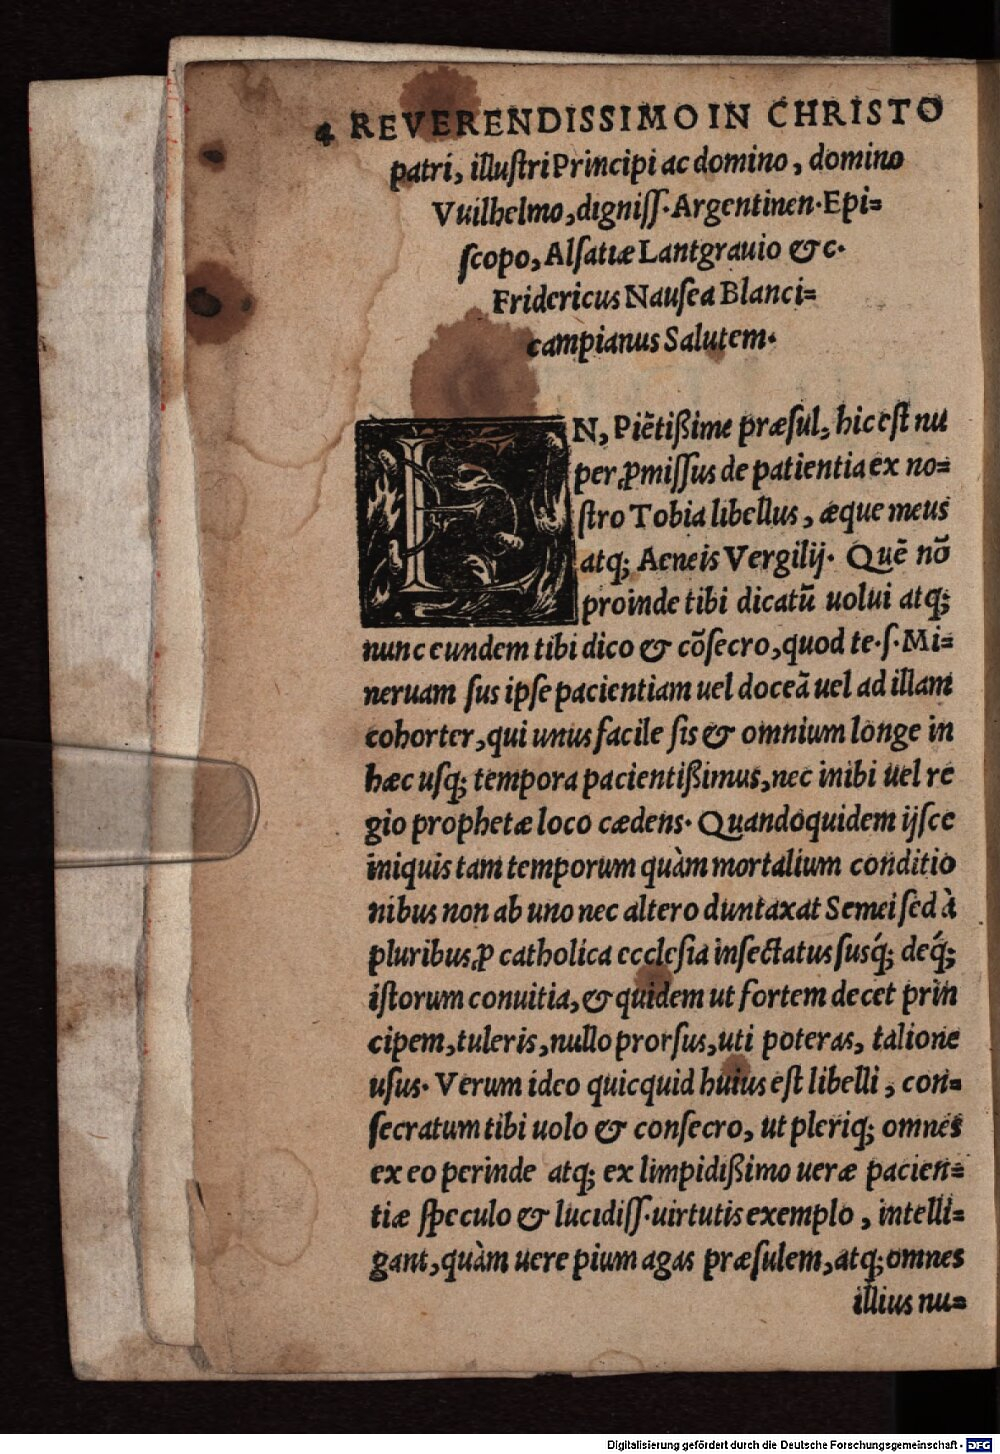 4 REVERENDISSIMO IN CHRISTO
patri, illuſtri Principi ac domino, domino
Vuilhelmo, digniſſ. Argentinen. Epi=
ſcopo, Alſatiæ Lantgrauio & c.
Fridericus Nauſea Blanci=
campianus Salutem.
EN, Piẽtißime præſul, hic eſt nu
per ꝓmiſſus de patientia ex no=
ſtro Tobia libellus, æque meus
atq; Aeneis Vergilij. Quẽ nõ
proinde tibi dicatũ uolui atq;
nunc eundem tibi dico & cõſecro, quod te. ſ. Mi=
neruam ſus ipſe pacientiam uel doceã uel ad illam
cohorter, qui unus facile ſis & omnium longe in
hæc uſq; tempora pacientißimus, nec inibi uel re
gio prophetæ loco cædens. Quandoquidem ijſce
iniquis tam temporum quàm mortalium conditio
nibus non ab uno nec altero duntaxat Semei ſed à
pluribus ꝓ catholica eccleſia inſectatus ſusq́; deq́;
iſtorum conuitia, & quidem ut fortem decet prin
cipem, tuleris, nullo prorſus, uti poteras, talione
uſus. Verum ideo quicquid huius eſt libelli, con=
ſecratum tibi uolo & conſecro, ut pleriq; omnes
ex eo perinde atq; ex limpidißimo ueræ pacien=
tiæ ſpeculo & lucidiſſ. uirtutis exemplo, intelli=
gant, quàm uere pium agas præſulem, atq; omnes
illius nu=
Digitalisierung gefördert durch die Deutsche Forschungsgemeinschaft - DFG